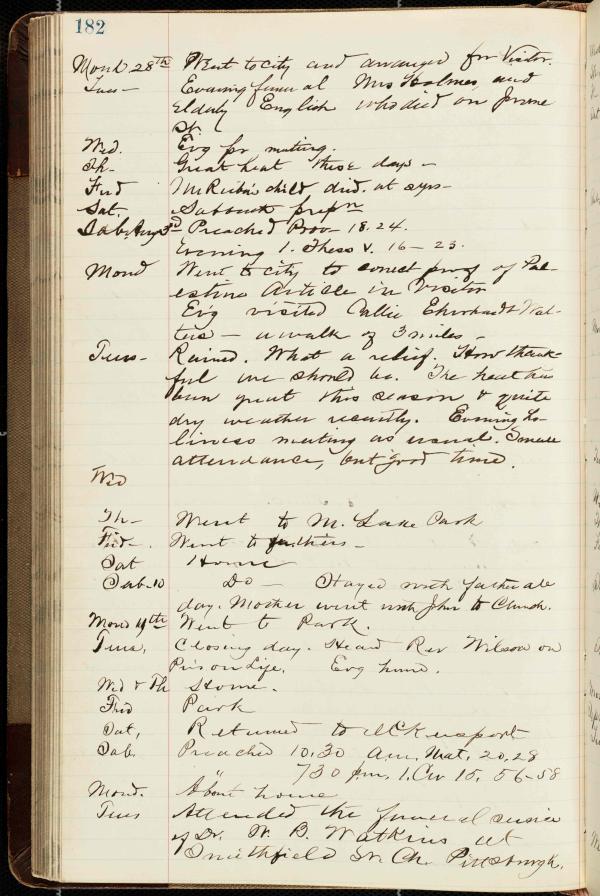 182
Mond 28th Went to city and arranged for Visitor.
Tues - Evening funeral Mrs Holmes, and
Elderly English who died on Jerome
St.
Wed. Evg pr meeting.
Th- Great heat these days -
Frid Mr child died. at 2yrs-
Sat. Sabbath prepn
Sab, Aug 3d Preached Prov- 18.24.
Evening 1. Thess V. 16-23.
Mond Went to city to correct proof of Pal-
estine Article in Visitor
Ev'g visited Callie Eherhardt Wal-
ters - a walk of 3 miles -
Tues- Rained. What a relief. How thank-
ful we should be. The heat has
been great this season & quite
dry weather recently. Evening ho-
liness meeting as usual. Small
attendance, but good time.
Wed
Th- Went to M. Lake Park
Frid- Went to fathers -
Sat Home
Sab-10 Do- Stayed with father all
day. Mother went with John to Church.
Mond 11th Went to Park.
Tues, Closing day. Heard Rev Wilson on
Prison Life. Evg home.
Wed & Th Home.
Frid Park
Sat, Returned to McKeesport
Sab. Preached 10.30 Am. Mat. 20.28
" 730 pm. 1. Cor 15. 56-58
Mond. About home
Tues Attended the funeral service
of Dr. W. B. Watkins at
Smithfield St. Ch. Pittsburgh.